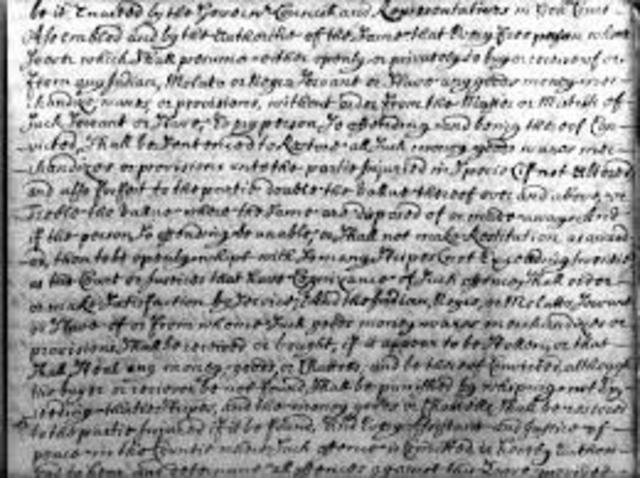 be it Enacted by the Governr Councill and Representatives in Genll Court
Assembled and by the Authoritie of the Same that Every Free person whom
Soever which Shall presume either openly or privately to buy or receive of or
from any Indian, Molato or Negro Servant or Slave any goods money mer
chandize, wares, or provisions, without order from the Master or Mistress of
Such Servant or Slave, Every person So offending and being thereof Con
victed, Shall be Sentenced to Restore all Such money goods wares mer
chandizes or provisions unto the partie Injured in Specie (if not altered)
and also forfeit to the partie double the value thereof over and above, or
treble the value where the Same are disposed of or made away, And
if the person So offending be unable, or Shall not make Restitution as award
ed, then to be openly whipt with So many Stripes (not Exceeding twentie)
as the Court or Justices that have Cognizance of Such offence, Shall order
or make Satisfaction by Service, And the Indian, Negro, or Molatto, Servant
or Slave of or from whome Such goods money wares merchandizes or
provisions Shall be received or bought, if it appear to be Stollen, or that
Shall Steal any money, goods, or Chattels, and be thereof Convicted, although
the buyer or receiver be not found, Shall be punished by whiping not Ex
ceeding thirtie Stripes, and the money goods or Chattels Shall be restored
to the partie Injured if it be found, And Every Assistant and Justice of
peace in the Countie where Such offence is Comitted is hereby Authori
to hear and determine all offences against this Law